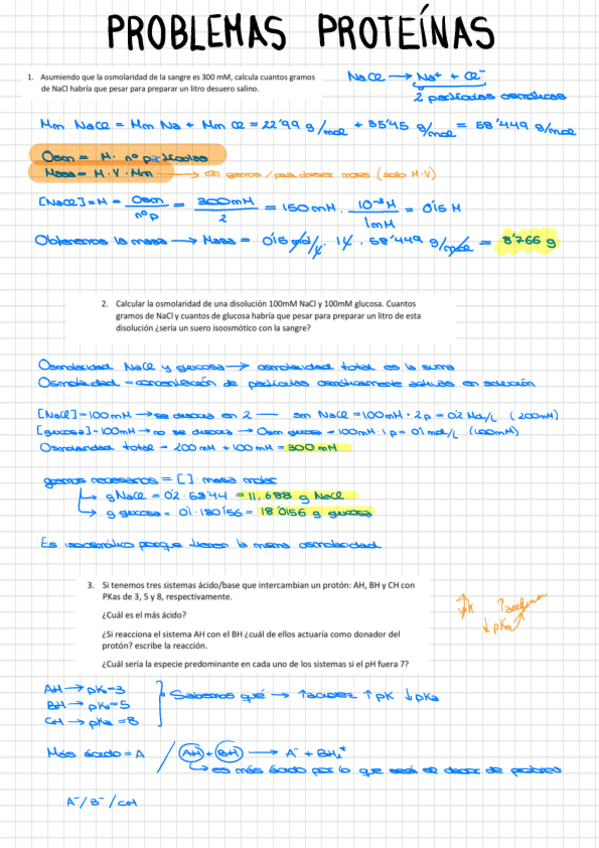 PROBLEMAS PROTEÍNAS
1. Asumiendo que la osmolaridad de la sangre es 300 mM, calcula cuantos gramos
de NaCl habría que pesar para preparar un litro desuero salino.
NaCl → Na⁺ + Cl⁻
2 partículas osmóticas
Mm NaCl = Mm Na + Mm Cl = 22'99 g/mol + 35'45 g/mol = 58'449 g/mol
Osm = M · nº partículas
Masa = M · V · Mm → En gramos / para obtener moles (solo M·V)
[NaCl] = M = Osm / nºp = 300mM / 2 = 150mM · 10⁻³M / 1mM = 0'15 M
Obtenemos la masa → Masa = 0'15 mol/L · 1L · 58'449 g/mol = 8'766 g
2. Calcular la osmolaridad de una disolución 100mM NaCl y 100mM glucosa. Cuantos
gramos de NaCl y cuantos de glucosa habría que pesar para preparar un litro de esta
disolución ¿sería un suero isoosmótico con la sangre?
Osmolaridad NaCl y glucosa → osmolaridad total es la suma
Osmolaridad = concentración de partículas osmóticamente activas en solución
[NaCl] = 100mM → se disocia en 2 — Osm NaCl = 100mM · 2p = 0'2 Mol/L (200mM)
[glucosa] = 100mM → no se disocia → Osm glucosa = 100mM · 1p = 0'1 mol/L (100mM)
Osmolaridad total = 200mM + 100mM = 300 mM
gramos necesarios = [ ] · masa molar
↳ g NaCl = 0'2 · 58'44 = 11,688 g NaCl
↳ g glucosa = 0'1 · 180'156 = 18'0156 g glucosa
Es isosmótico porque tienen la misma osmolaridad
3. Si tenemos tres sistemas ácido/base que intercambian un protón: AH, BH y CH con
PKas de 3, 5 y 8, respectivamente.
¿Cuál es el más ácido?
¿Si reacciona el sistema AH con el BH ¿cuál de ellos actuaría como donador del
protón? escribe la reacción.
¿Cuál sería la especie predominante en cada uno de los sistemas si el pH fuera 7?
↑pK ↑acidez
↓pKa
AH → pK=3
BH → pKa=5
CH → pKa=8
Sabemos qué → ↑acidez ↑pK ↓pKa
Más ácido = A / AH + BH → A⁻ + BH₂⁺
↳ es más ácido por lo que será el dador de protones
A⁻ / B⁻ / CH